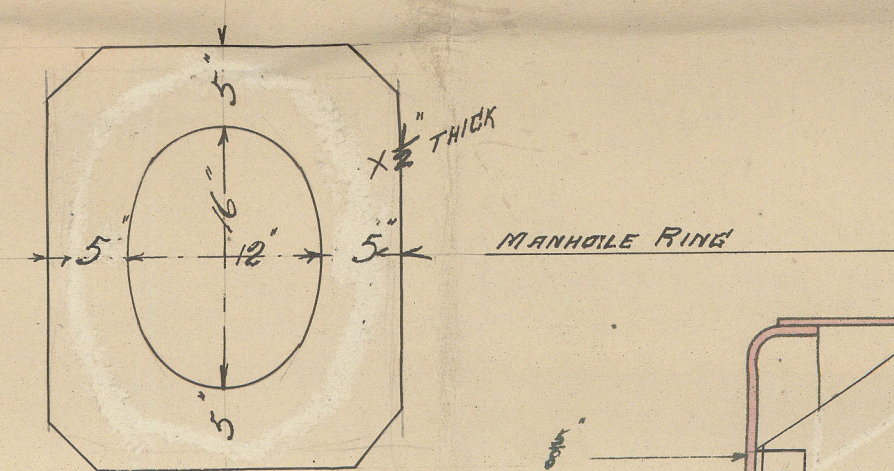 5"
X 1/2" THICK
16"
5" 12" 5"
MANHOLE RING
5"
5/8"